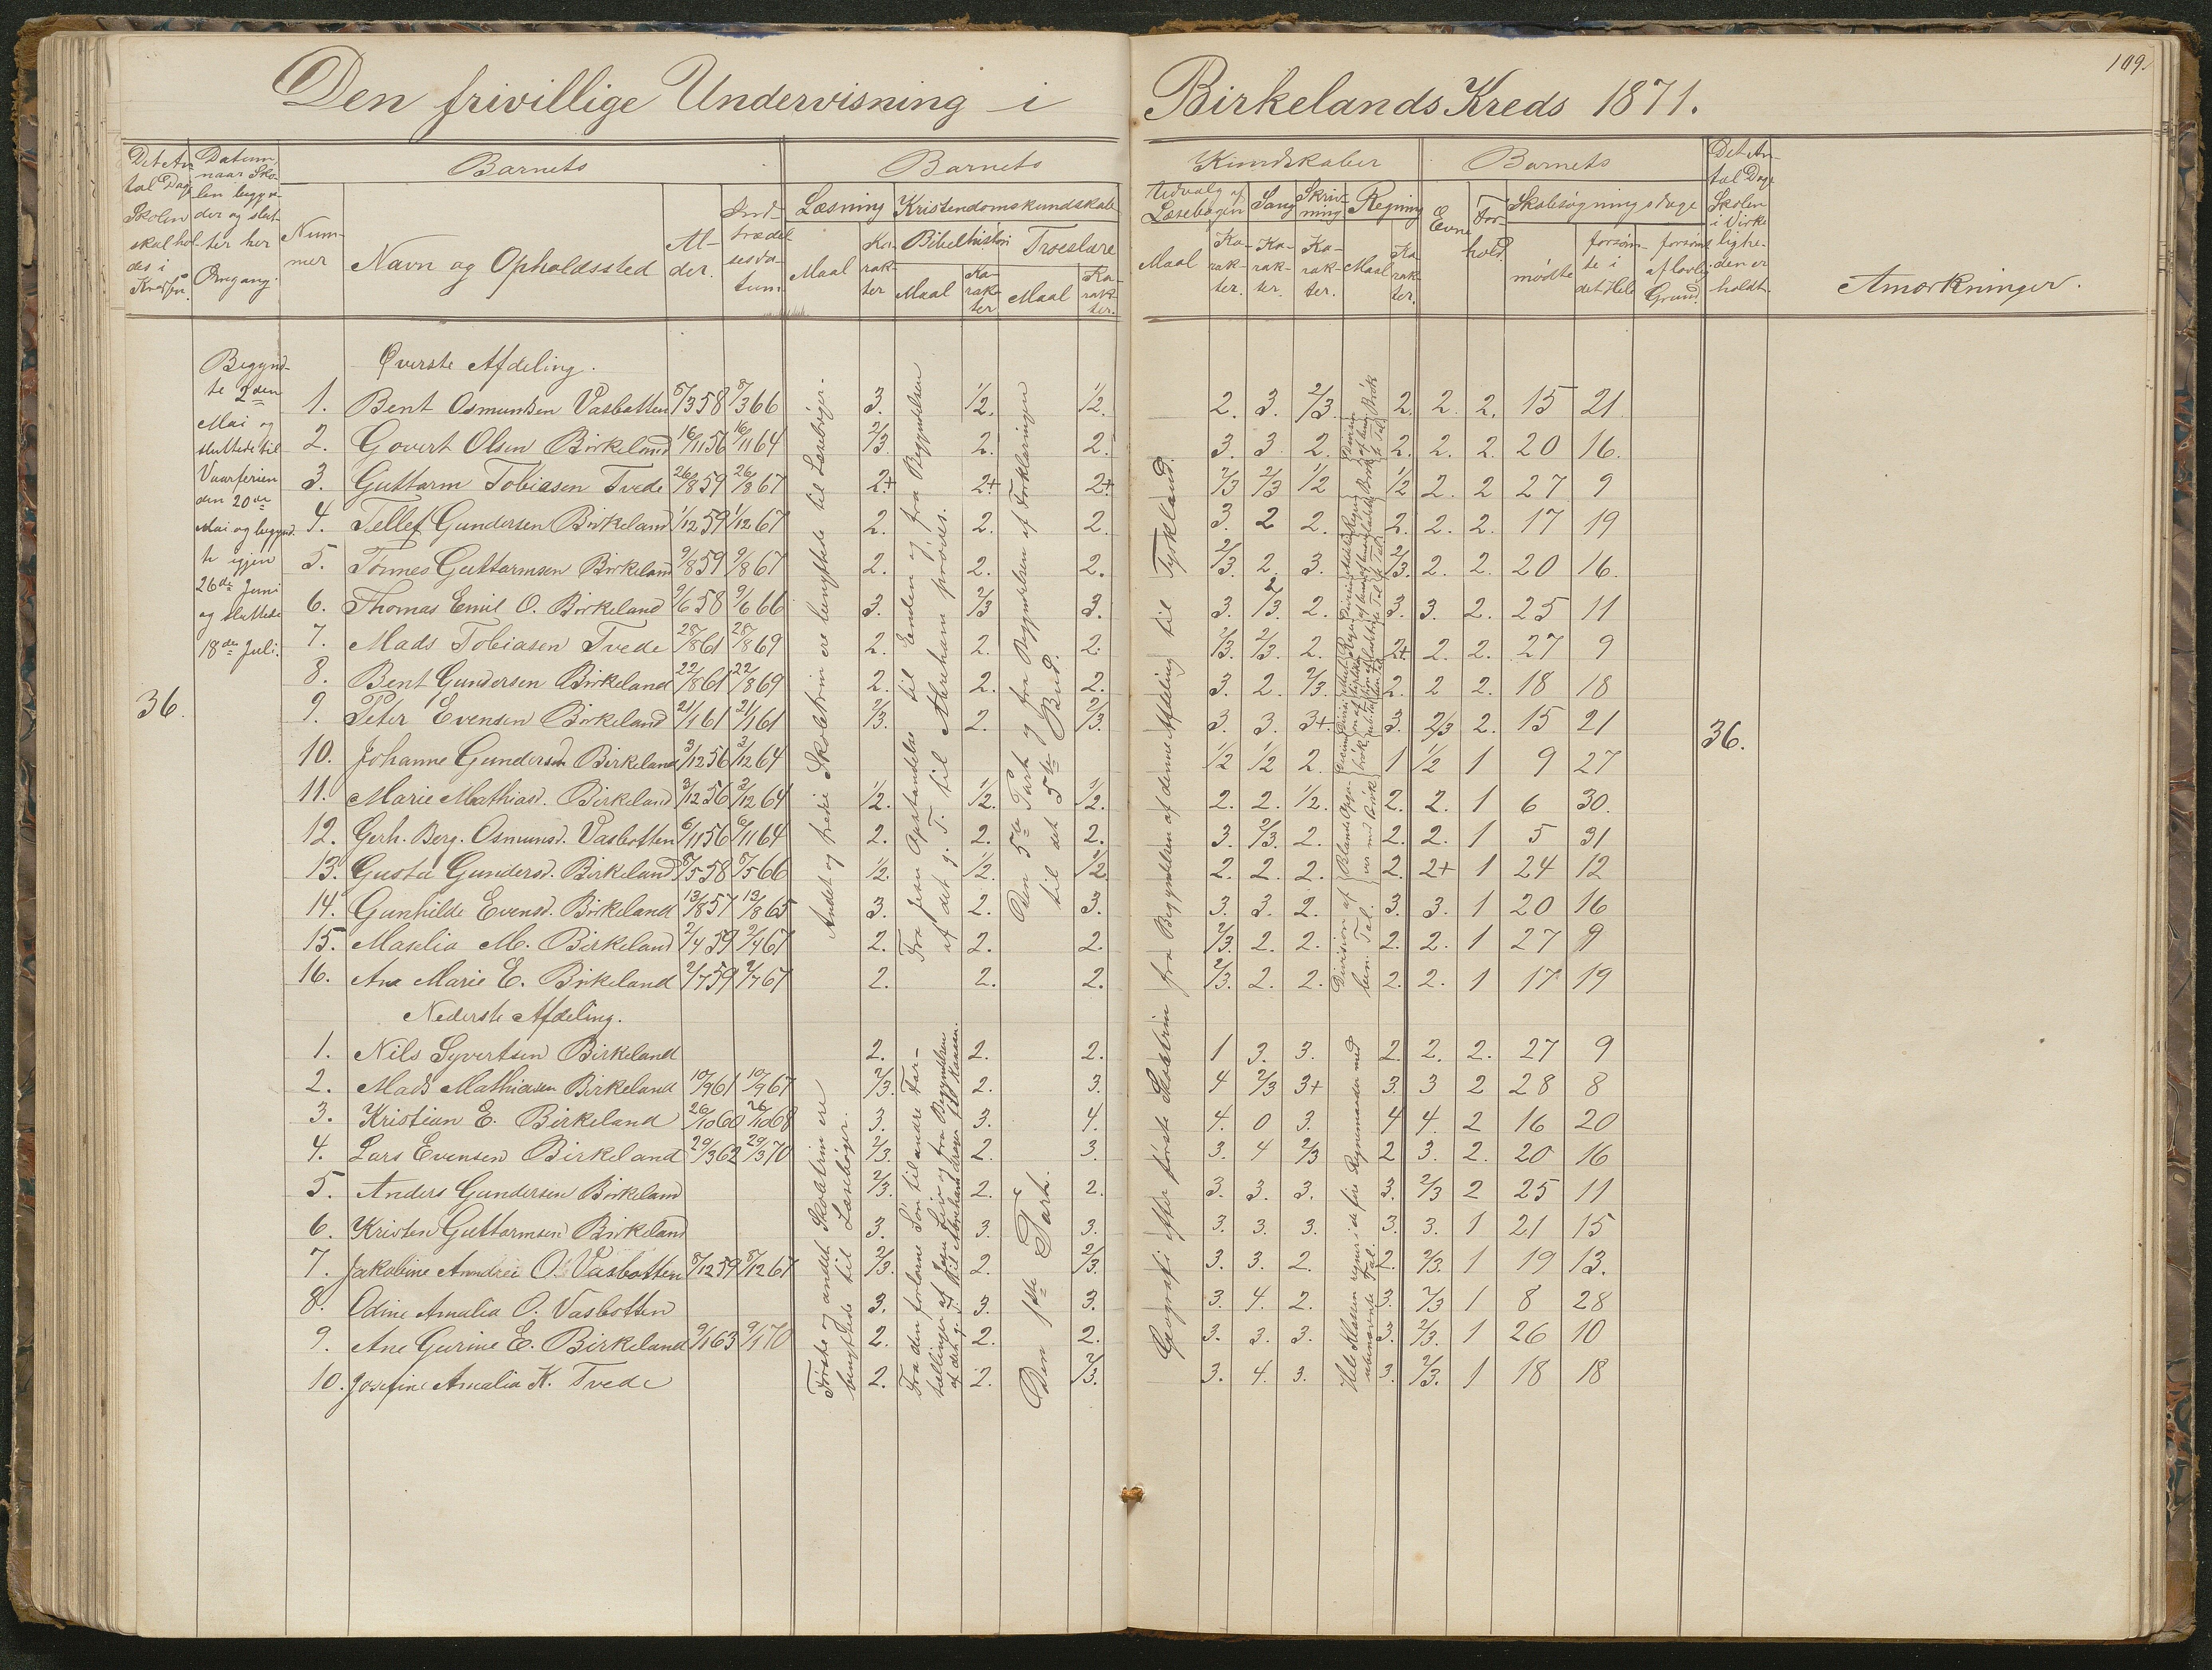 109.
Den frivillige Undervisning i Birkelands Kreds 1871.
Det An-
tal Dage
Skolen
skal hol-
des i
Kredsen.
Datum,
naar Sko-
len begyn-
der og slut-
ter hver
Omgang.
Barnets
Num-
mer
Navn og Opholdssted
Al-
der.
Ind-
trædel-
sesda-
tum
Barnets Kundskaber
Læsning
Maal
Ka-
rak-
ter
Kristendomskundskab
Bibelhistori
Maal
Ka-
rak-
ter
Troeslære
Maal
Ka-
rak-
ter.
Udvalg af
Læsebogen
Maal
Ka-
rak-
ter.
Sang
Ka-
rak-
ter.
Skriv-
ning
Ka-
rak-
ter.
Regning
Maal
Ka-
rak-
ter.
Barnets
Evne
For-
hold.
Skolesøgningsdage
mødte
forsøm-
te i
det Hele
forsømt
af lovlig
Grund.
Det An-
tal Dage
Skolen
i Virke-
lighe-
den er
holdt.
Anmærkninger.
36.
Begynd-
te 2den
Mai og
sluttede til
Vaarferien
den 20de
Mai og begynd-
te igjen
26de Juni
og sluttede
18de Juli.
Øverste Afdeling.
1. Bent Osmundsen Vasbotten 8/3 58 8/3 66 3. 1/2. 1/2. 2. 3. 2/3. 2. 2. 2. 15 21
2. Govert Olsen Birkeland 16/11 56 16/11 64 2/3 2. 2. 3. 3 2. 2. 2. 2. 20 16.
3. Guttorm Tobiasen Tvede 26/8 59 26/8 67 2+ 2+ 2+ 2/3 2/3 1/2 1/2 2. 2 27 9
4. Tellef Gundersen Birkeland 1/12 59 1/12 67 2. 2. 2. 3. 2 2. 2. 2. 2. 17 19
5. Tönnes Guttormsen Birkeland 9/8 59 9/8 67 2. 2. 2. 2/3. 2. 3. 2/3. 2. 2. 20 16.
6. Thomas Emil O. Birkeland 9/6 58 9/6 66 3. 2/3 3. 3. 2/3. 2. 3. 3. 2. 25 11
7. Mads Tobiasen Tvede 28/8 61 28/8 69 2. 2. 2. 2/3. 2/3. 2. 2+ 2. 2. 27 9
8. Bent Gundersen Birkeland 22/8 61 22/8 69 2. 2. 2. 3. 2. 2/3. 2. 2 2. 18 18
9. Peter Evensen Birkeland 21/1 61 21/1 61 2/3. 2. 2/3. 3. 3. 3+ 3. 2/3 2. 15 21
36.
10. Johanne Gundersd. Birkeland 3/12 56 3/12 64 1/2 1/2 2. 1 1/2 1 9 27
11. Marie Mathiasd. Birkeland 3/12 56 3/12 64 1/2. 1/2. 1/2. 2. 2. 1/2. 2. 2. 1 6 30.
12. Gerh. Berg. Osmunsd. Vasbotten 6/11 56 6/11 64 2. 2. 2. 3. 2/3. 2. 2. 2. 1 5 31
13. Gusta Gundersd. Birkeland 8/5 58 8/5 66 1/2. 1/2. 1/2 2. 2. 2. 2. 2+ 1 24 12
14. Gunhilde Evensd. Birkeland 13/8 57 13/8 65 3. 2. 3. 3. 3. 2. 3. 3. 1 20 16
15. Maselia M. Birkeland 2/4 59 2/4 67 2. 2. 2. 2/3. 2. 2. 2. 2. 1 27 9
16. Ana Marie E. Birkeland 2/7 59 2/7 67 2. 2. 2. 2/3. 2. 2. 2. 2. 1 17 19
Andet og tredie Skoletrin ere benyttede til Læsebøger.
Fra Jesu Opstandelse til Enden og fra Begyndelsen
af det g. T. til Abraham prøvedes.
Den 5te Part og fra Begyndelsen af Forklaringen
til det 5te Bud.
Geografi efter første Skoletrin fra Begyndelsen af denne Afdeling til Tyskland.
Division af
ben. Tal.
Nederste Afdeling.
1. Nils Syvertsen Birkeland 2. 2. 2. 1 3. 3. 2. 2. 2. 27 9
2. Mads Mathiasen Birkeland 10/9 61 10/9 67 2/3. 2. 3. 4 2/3 3+ 3. 3 2 28 8
3. Kristian E. Birkeland 26/10 60 26/10 68 3. 3. 4. 4. 0 3. 4 4. 2 16 20
4. Lars Evensen Birkeland 29/3 62 29/3 70 2/3. 2. 3. 3. 4 2/3 2 3. 2. 20 16
5. Anders Gundersen Birkeland 2/3. 2. 2. 3. 3. 3. 3. 2/3 2 25 11
6. Kristen Guttormsen Birkeland 3. 3. 3. 3. 3. 3. 3. 3. 1 21 15
7. Jakobine Anndrei O. Vasbotten 8/12 59 8/12 67 2/3. 2. 2/3. 3. 3. 2. 2. 2/3. 1 19 13.
8. Odine Amalia O. Vasbotten 3. 3. 3. 3. 4. 2. 3. 2/3 1 8 28
9. Ane Gurine E. Birkeland 9/1 63 9/1 70 2. 2. 2. 3. 3. 3. 3. 2/3. 1 26 10
10. Josefine Amalia K. Tvede 2. 2. 2/3. 3. 4. 3. 3. 2/3. 1 18 18
Første og andet Skoletrin ere
benyttede til Læsebøger.
Fra den forlorne Søn til andre For-
tællinger af Jesu Liv og fra Begyndelsen
af det g. T. til Abraham drager til Kanaan.
Den 1ste Part.
Hele Klassen regner i de fire Regnemaader med
ubenævnte Tal.